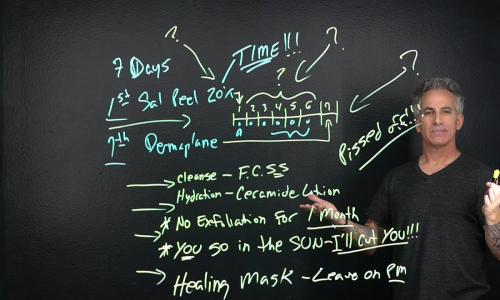 ? ? ?
TIME!!!
7 Days
?
1st Sal Peel 20%
1 2 3 4 5 6 7
7th Dermaplane
Pissed off!!!
cleanse - F.C.SS
Hydration - Ceramide Lotion
* No Exfoliation for 1 Month
* You go in the SUN - I'll cut YOU!!!
Healing Mask - Leave on pm